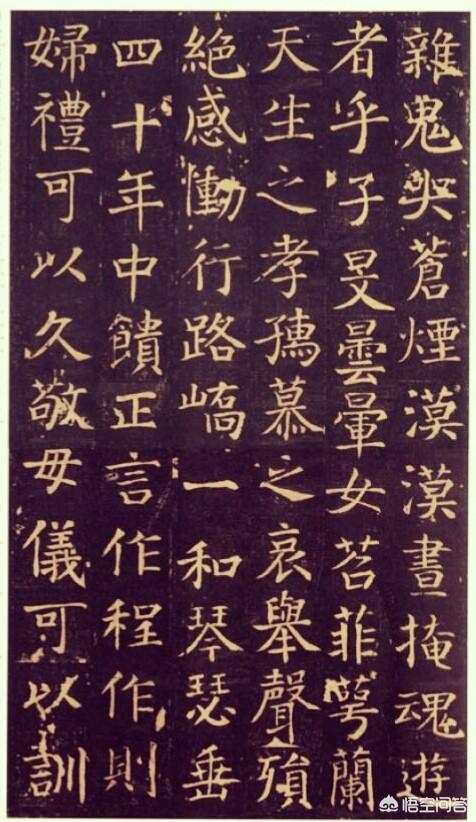 雜鬼哭蒼煙漠漠晝掩魂遊
者乎子旻曇暈女苕菲萼蘭
天生之孝孺慕之哀舉聲殞
絕感慟行路嶠一和琴瑟垂
四十年中饋正言作程作則
婦禮可以久敬母儀可以訓
悟空问答